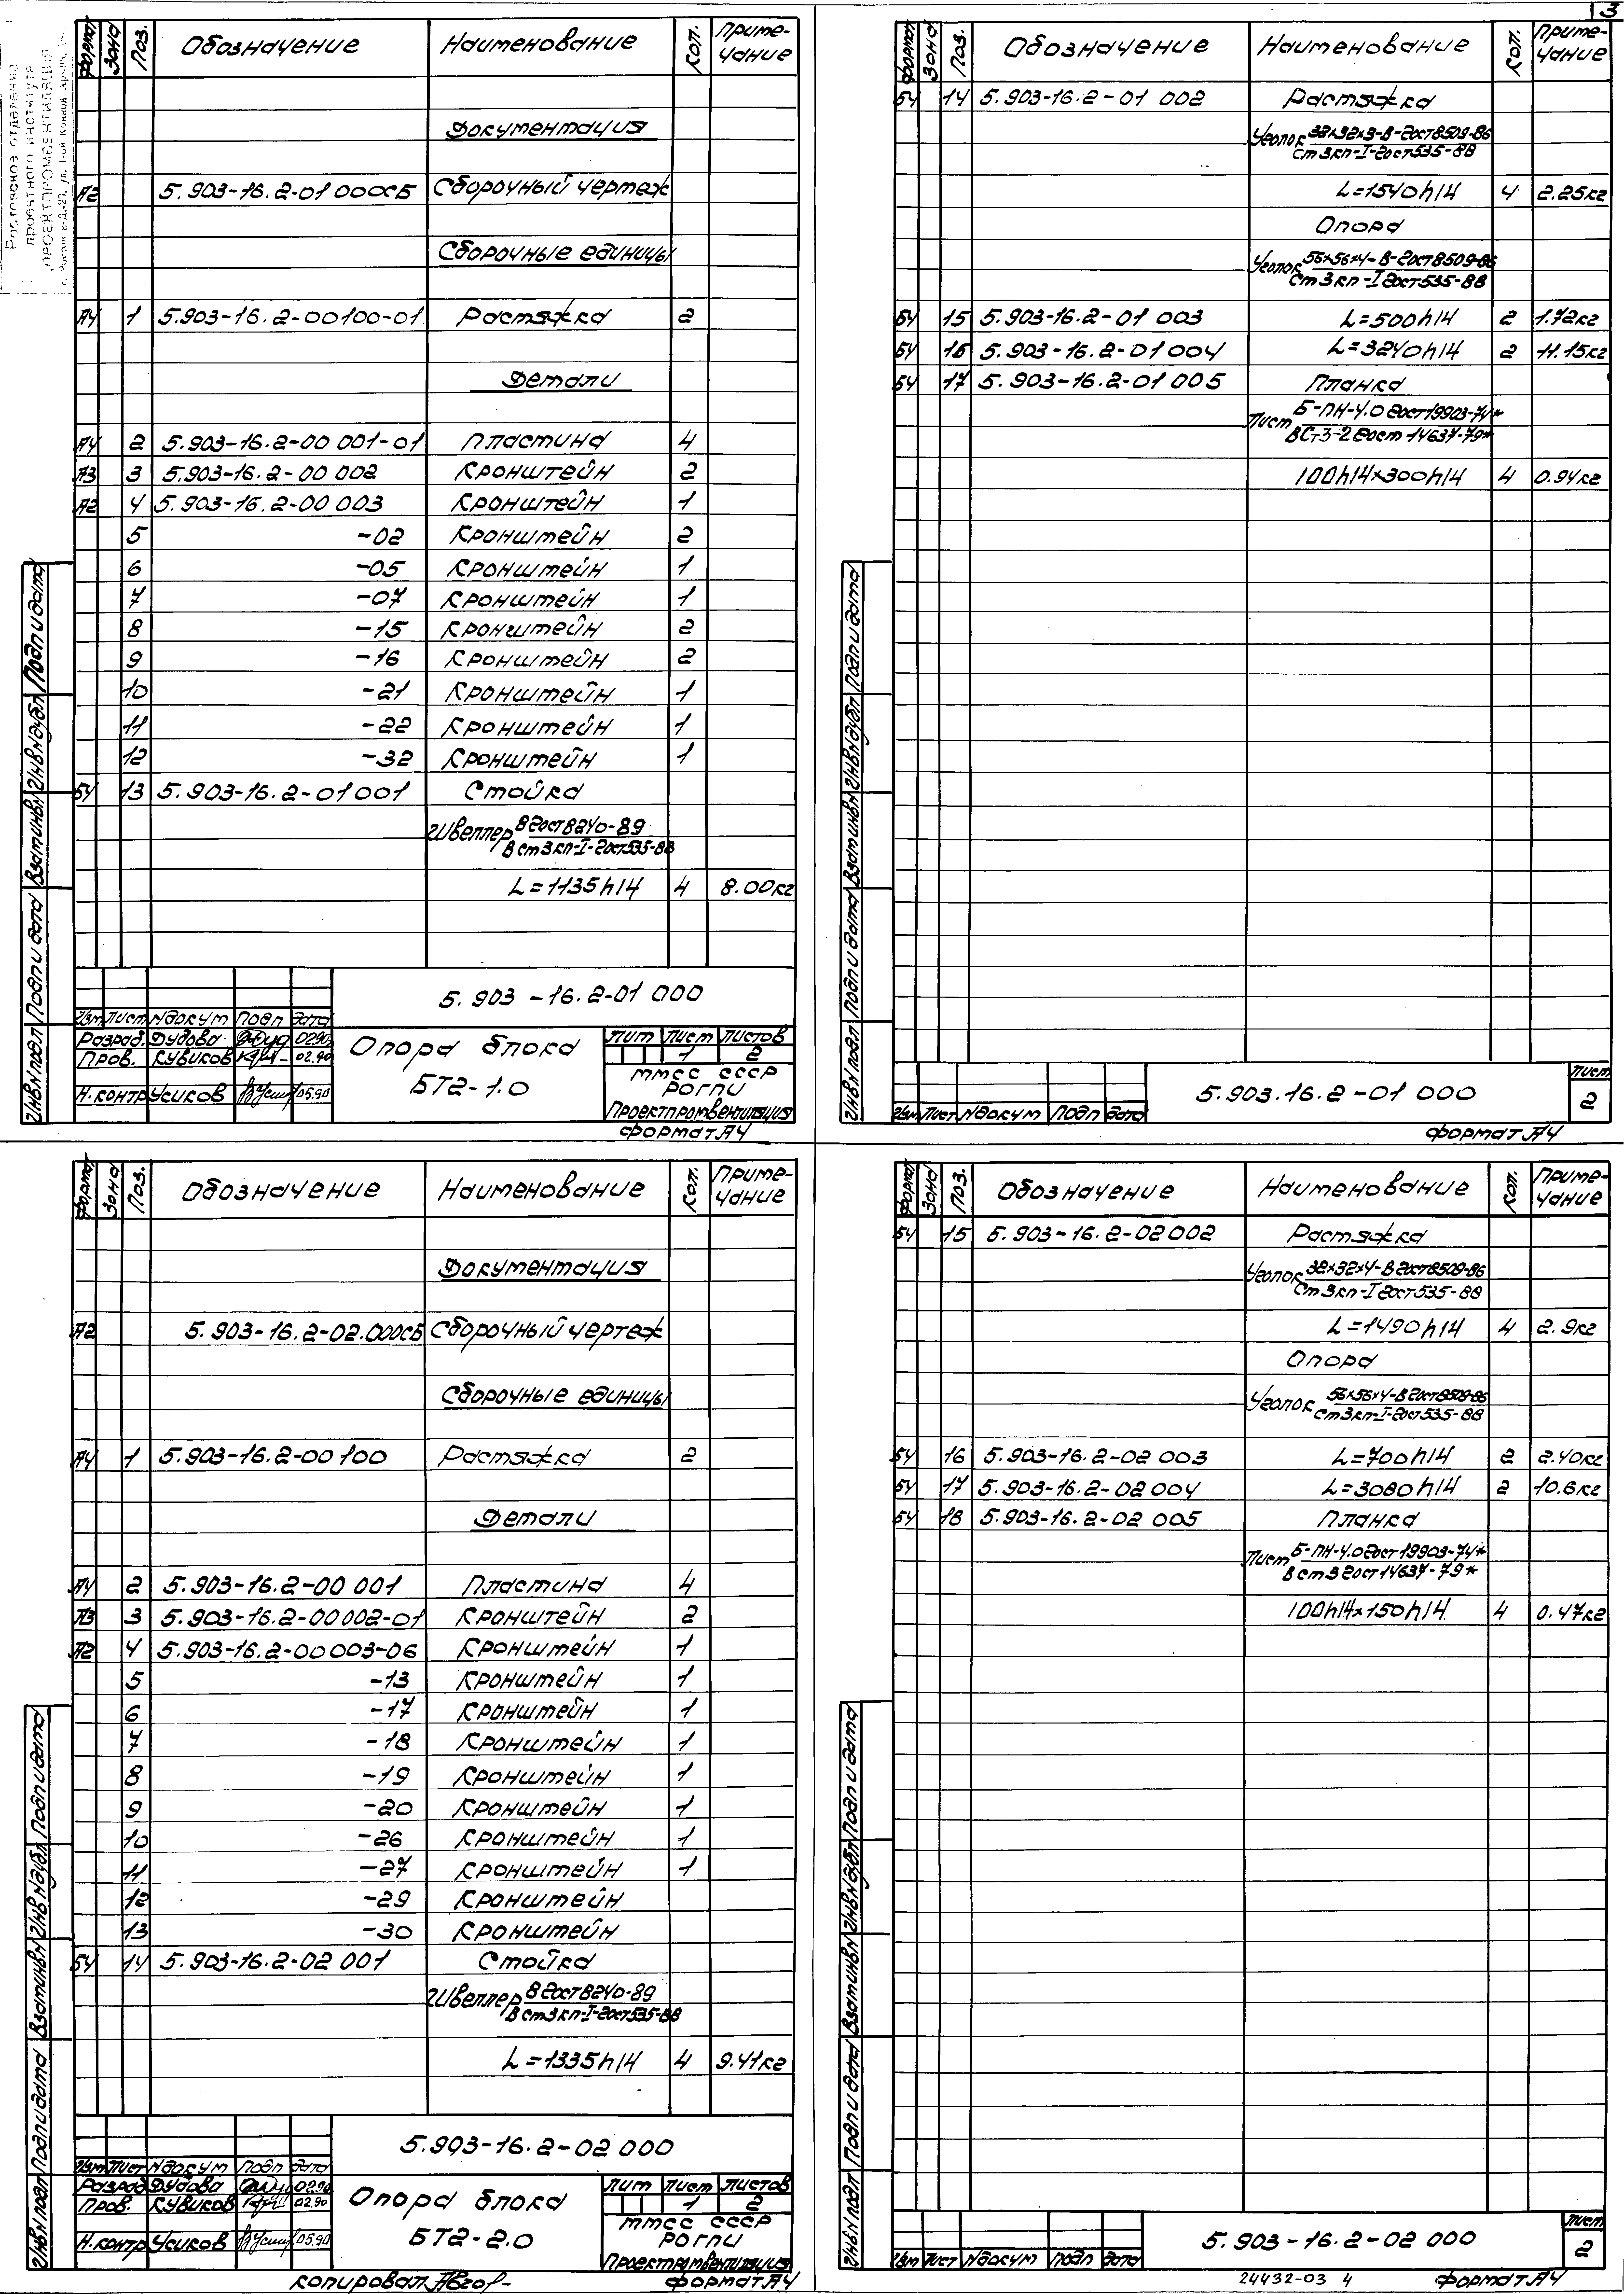 3
Формат Зона Поз. Обозначение Наименование Кол. Приме-
чание
Документация
А2 5.903-16.2-01 000СБ Сборочный чертеж
Сборочные единицы
А4 1 5.903-16.2-00100-01 Растяжка 2
Детали
А4 2 5.903-16.2-00 001-01 Пластина 4
А3 3 5.903-16.2-00 002 Кронштейн 2
А2 4 5.903-16.2-00 003 Кронштейн 1
5 -02 Кронштейн 2
6 -05 Кронштейн 1
7 -07 Кронштейн 1
8 -15 Кронштейн 2
9 -16 Кронштейн 2
10 -21 Кронштейн 1
11 -22 Кронштейн 1
12 -32 Кронштейн 1
БЧ 13 5.903-16.2-01 001 Стойка
Швеллер 8 ГОСТ 8240-89
В ст 3 кп-I-ГОСТ 535-88
L=1135h14 4 8.00кг
5.903-16.2-01 000
Изм Лист N докум Подп Дата
Разраб. Дудова 02.90
Пров. Кувиков 02.90
Н.контр Усиков 05.90
Опора блока
БТ2-1.0
Лит Лист Листов
1 2
ММСС СССР
РОГПИ
Проектпромвентиляция
Формат А4
Инв N подл Подп и дата Взам инв N Инв N дубл Подп и дата
Формат Зона Поз. Обозначение Наименование Кол. Приме-
чание
БЧ 14 5.903-16.2-01 002 Растяжка
Уголок 32х32х3-В-ГОСТ 8509-86
Ст 3 кп-I-ГОСТ 535-88
L=1540h14 4 2.25кг
Опора
Уголок 56х56х4-В-ГОСТ 8509-86
Ст 3 кп-I ГОСТ 535-88
БЧ 15 5.903-16.2-01 003 L=500h14 2 1.72кг
БЧ 16 5.903-16.2-01 004 L=3240h14 2 11.15кг
БЧ 17 5.903-16.2-01 005 Планка
Лист Б-ПН-4.0 ГОСТ 19903-74*
ВСт3-2 ГОСТ 14637-79*
100h14х300h14 4 0.94кг
5.903.16.2-01 000
Изм Лист N докум Подп Дата
Лист
2
Формат А4
Инв N подл Подп и дата Взам инв N Инв N дубл Подп и дата
Формат Зона Поз. Обозначение Наименование Кол. Приме-
чание
Документация
А2 5.903-16.2-02.000СБ Сборочный чертеж
Сборочные единицы
А4 1 5.903-16.2-00 100 Растяжка 2
Детали
А4 2 5.903-16.2-00 001 Пластина 4
А3 3 5.903-16.2-00 002-01 Кронштейн 2
А2 4 5.903-16.2-00 003-06 Кронштейн 1
5 -13 Кронштейн 1
6 -17 Кронштейн 1
7 -18 Кронштейн 1
8 -19 Кронштейн 1
9 -20 Кронштейн 1
10 -26 Кронштейн 1
11 -27 Кронштейн 1
12 -29 Кронштейн
13 -30 Кронштейн
БЧ 14 5.903-16.2-02 001 Стойка
Швеллер 8 ГОСТ 8240-89
В ст 3 кп-I-ГОСТ 535-88
L=1335h14 4 9.41кг
5.903-16.2-02 000
Изм Лист N докум Подп Дата
Разраб Дудова 02.90
Пров. Кувиков 02.90
Н.контр Усиков 05.90
Опора блока
БТ2-2.0
Лит Лист Листов
1 2
ММСС СССР
РОГПИ
Проектпромвентиляция
Копировал Формат А4
Инв N подл Подп и дата Взам инв N Инв N дубл Подп и дата
Формат Зона Поз. Обозначение Наименование Кол. Приме-
чание
БЧ 15 5.903-16.2-02 002 Растяжка
Уголок 32х32х4-В ГОСТ 8509-86
Ст 3 кп-I ГОСТ 535-88
L=1490h14 4 2.9кг
Опора
Уголок 56х56х4-В ГОСТ 8509-86
Ст 3 кп-I-ГОСТ 535-88
БЧ 16 5.903-16.2-02 003 L=700h14 2 2.40кг
БЧ 17 5.903-16.2-02 004 L=3080h14 2 10.6кг
БЧ 18 5.903-16.2-02 005 Планка
Лист Б-ПН-4.0 ГОСТ 19903-74*
В ст 3 ГОСТ 14637-79*
100h14х150h14 4 0.47кг
5.903-16.2-02 000
Изм Лист N докум Подп Дата
Лист
2
24432-03 4 Формат А4
Инв N подл Подп и дата Взам инв N Инв N дубл Подп и дата
Ростовское отделение
проектного института
ПРОЕКТПРОМВЕНТИЛЯЦИЯ